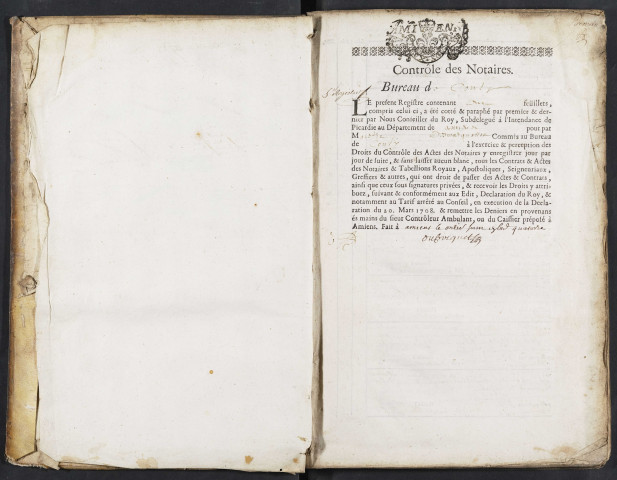 AMIENS
Contrôle des Notaires.
Bureau d
LE present Registre contenant feüillets,
compris celui ci, a été cotté & paraphé par premier & der-
nier par Nous Conseiller du Roy, Subdelegué à l'Intendance de
Picardie au Département de pour par
M Commis au Bureau
de à l'exercice & perception des
Droits du Contrôle des Actes des Notaires y enregistrer jour par
jour de suite, & sans laisser aucun blanc, tous les Contrats & Actes
des Notaires & Tabellions Royaux, Apostoliques, Seigneuriaux,
Greffiers & autres, qui ont droit de passer des Actes & Contrats,
ainsi que ceux sous signatures privées, & recevoir les Droits y attri-
buez, suivant & conformément aux Edit, Declaration du Roy, &
notamment au Tarif arrêté au Conseil, en execution de la Decla-
ration du 20. Mars 1708. & remettre les Deniers en provenans
és mains du sieur Contrôleur Ambulant, ou du Caissier préposé à
Amiens. Fait à amiens le